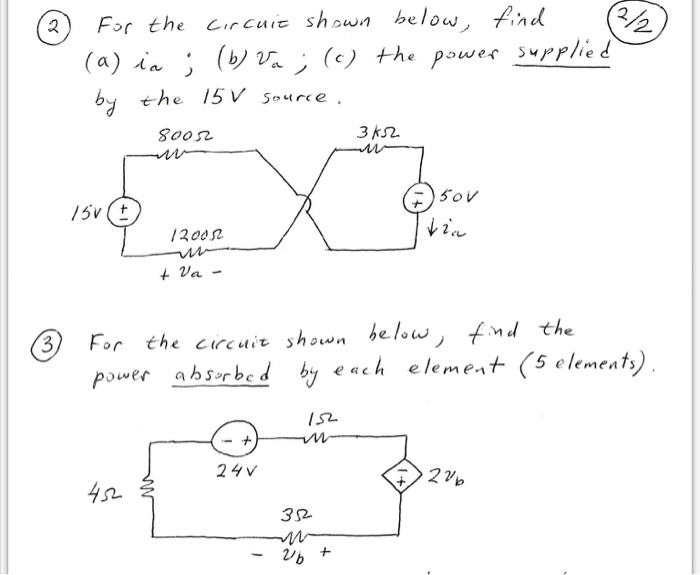 ② For the circuit shown below, find 2/2
(a) ia ; (b) Va ; (c) the power supplied
by the 15V source.
800Ω 3kΩ
15V + − − + 50V
↓ia
1200Ω
+ Va −
③ For the circuit shown below, find the
power absorbed by each element (5 elements).
1Ω
− +
24V − + 2Vb
4Ω
3Ω
− Vb +